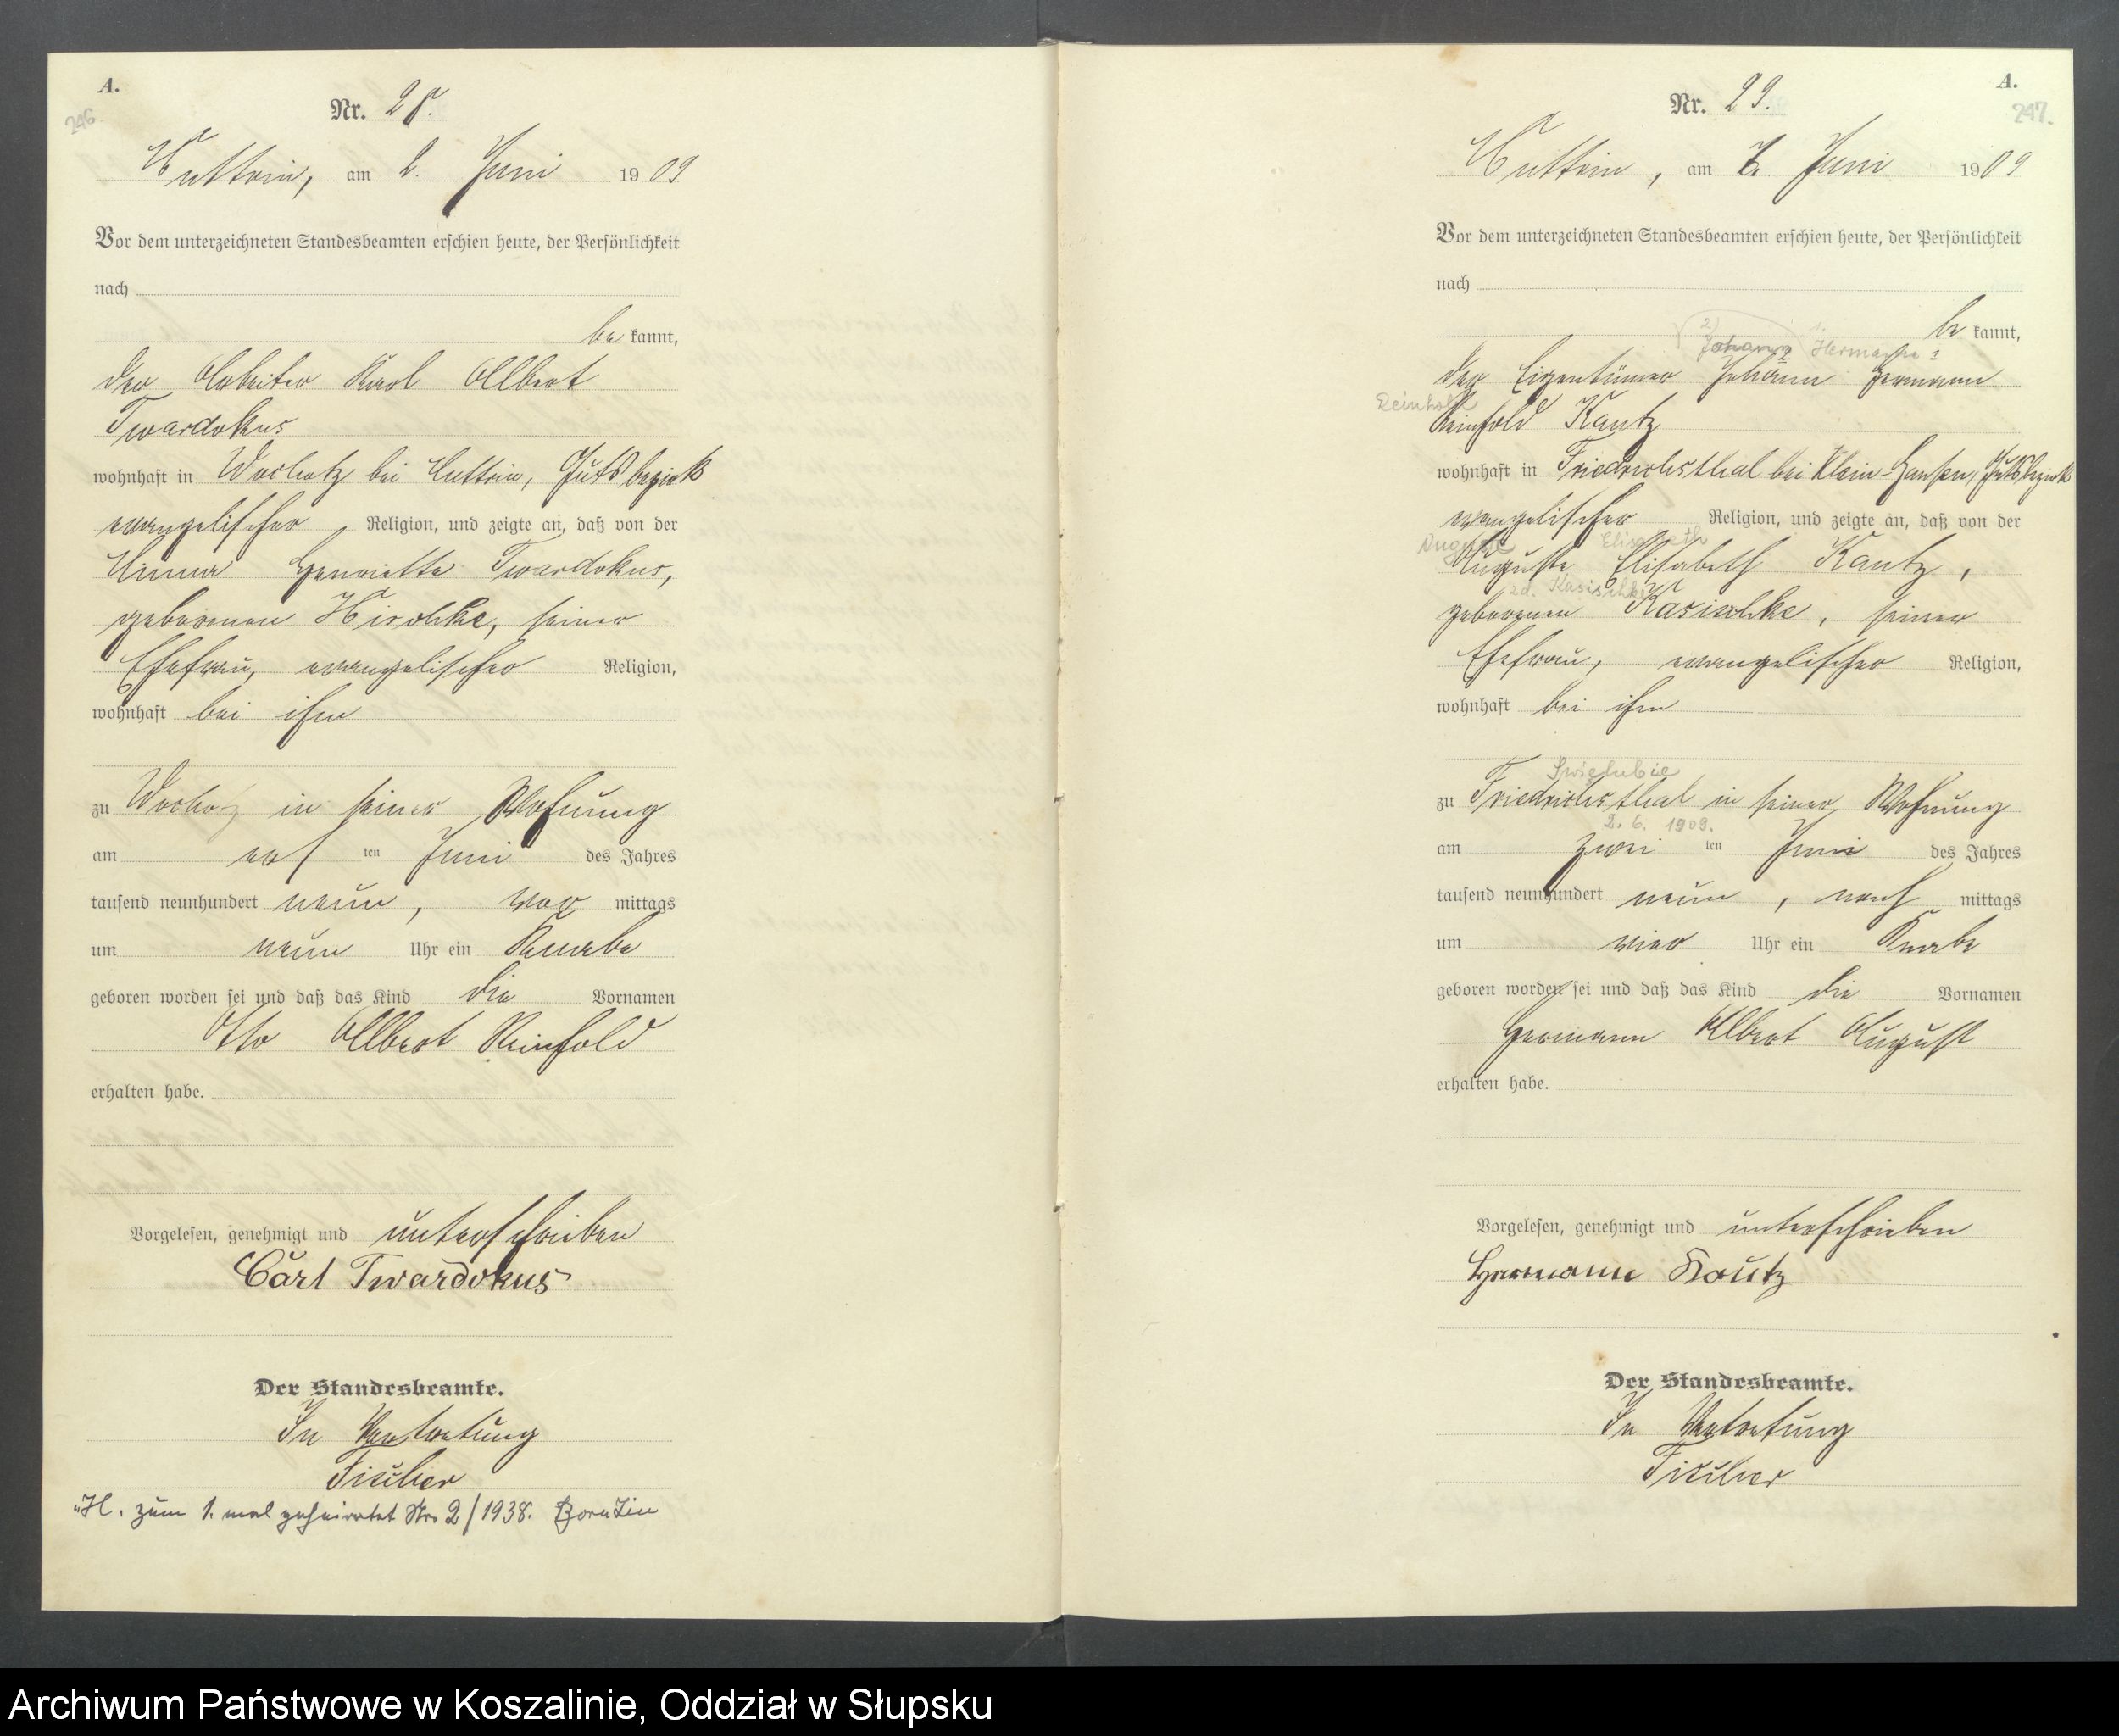 A.
246.
Nr. 28.
Kuttrin, am 2. Juni 1909
Vor dem unterzeichneten Standesbeamten erschien heute, der Persönlichkeit
nach
be kannt,
der Arbeiter Karl Albert
Twardokus
wohnhaft in bei Kuttrin, Gutsbezirk
evangelischer Religion, und zeigte an, daß von der
Henriette Twardokus,
geborenen seiner
Ehefrau, evangelischer Religion,
wohnhaft bei ihm
zu in seiner Wohnung
am ten Juni des Jahres
tausend neunhundert neun, vor mittags
um neun Uhr ein Knabe
geboren worden sei und daß das Kind die Vornamen
Otto Albert Reinhold
erhalten habe.
Vorgelesen, genehmigt und unterschrieben
Carl Twardokus
Der Standesbeamte.
In Vertretung
Fischer
"H. zum 1. mal geheiratet Nr. 2/1938.
A.
247.
Nr. 29.
Kuttrin, am Juni 1909
Vor dem unterzeichneten Standesbeamten erschien heute, der Persönlichkeit
nach
be kannt,
Johann Hermann
der Eigentümer Johann Hermann
Reinhold
Reinhold Kautz
wohnhaft in Friedrichsthal bei Klein-Gansen, Gutsbezirk
evangelischer Religion, und zeigte an, daß von der
Auguste Elisabeth
Auguste Elisabeth Kautz,
zd. Kasischke
geborenen Kasischke, seiner
Ehefrau, evangelischer Religion,
wohnhaft bei ihm
Świelubie
zu Friedrichsthal in seiner Wohnung
2. 6. 1909.
am zwei ten Juni des Jahres
tausend neunhundert neun, nach mittags
um vier Uhr ein Knabe
geboren worden sei und daß das Kind die Vornamen
Hermann Albert August
erhalten habe.
Vorgelesen, genehmigt und unterschrieben
Hermann Kautz
Der Standesbeamte.
In Vertretung
Fischer
Archiwum Państwowe w Koszalinie, Oddział w Słupsku